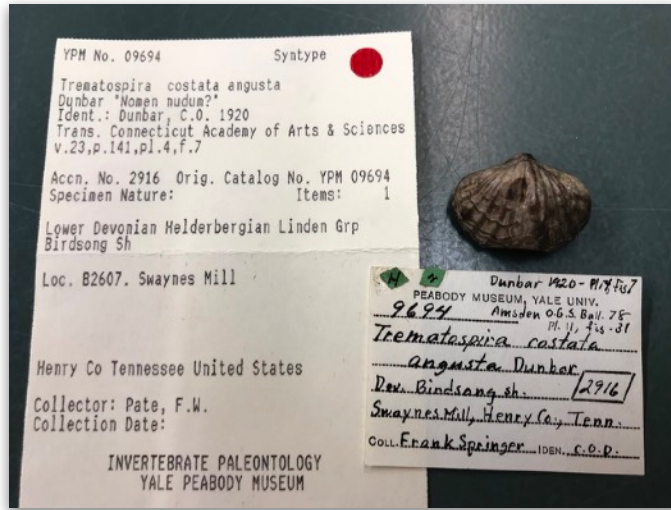 YPM No. 09694 Syntype
Trematospira costata angusta
Dunbar "Nomen nudum?"
Ident.: Dunbar, C.O. 1920
Trans. Connecticut Academy of Arts & Sciences
v.23,p.141,pl.4,f.7
Accn. No. 2916 Orig. Catalog No. YPM 09694
Specimen Nature: Items: 1
Lower Devonian Helderbergian Linden Grp
Birdsong Sh
Loc. B2607. Swaynes Mill
Henry Co Tennessee United States
Collector: Pate, F.W.
Collection Date:
INVERTEBRATE PALEONTOLOGY
YALE PEABODY MUSEUM
Dunbar 1920 - Pl. fig 7
PEABODY MUSEUM, YALE UNIV.
9694 Amsden O.G.S. Bull. 78
Pl. 11, fig. 31
Trematospira costata
angusta Dunbar
Dev. Birdsong sh. 2916
Swaynes Mill, Henry Co., Tenn.
COLL. Frank Springer IDEN. C.O.D.